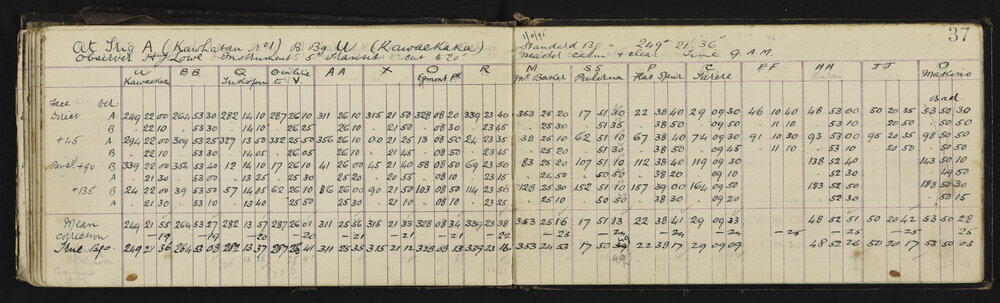 37
At Trig A (Kawhatau No 1) B Bg U (Kawaekaka) 1/11/95 Standard Bg = 249° 21' 36"
Observer H J Lowe Instrument 5" Transit cut to 20" Weather calm & clear Time 9 A.M.
U BB Q O AA X O R M SS P C FF HH JJ O
Kawaekaka V. Egmont Pk. Mt. Baker Palerua Flat Spur Makino
Face Ver Bad
Direct A 249 22 00 264 53 30 282 14 10 287 26 10 311 26 10 315 21 50 328 08 20 339 23 40 353 25 20 17 51 30 22 38 40 29 09 30 46 10 40 48 53 00 50 20 35 53 50 30
B 22 10 53 30 14 00 26 25 26 10 21 50 08 30 23 45 25 30 51 35 38 50 09 50 11 10 53 10 20 50 50 50
+45 A 294 22 00 309 53 25 327 13 50 332 25 50 356 26 10 00 21 25 13 08 50 24 23 35 38 25 10 62 51 10 67 38 40 74 09 30 91 10 30 93 53 00 95 20 35 98 50 50
B 22 10 53 30 14 05 26 05 26 10 21 45 08 50 23 45 25 20 51 30 38 50 09 45 11 10 53 10 20 50 50 50
Revsd +90 B 339 22 00 354 53 40 12 14 10 17 26 10 41 26 00 45 21 40 58 08 50 69 23 50 83 25 20 107 51 10 112 38 40 119 09 30 138 52 40 143 50 10
A 21 30 53 00 13 25 25 30 25 20 20 55 08 10 23 15 24 50 50 50 38 20 09 10 52 30 49 50
+135 B 24 22 00 39 53 50 57 14 05 62 26 10 86 26 00 90 21 50 103 08 50 114 23 50 128 25 30 152 51 10 157 39 00 164 09 50 183 52 50 188 50 30
A 21 30 53 10 13 40 25 50 25 30 21 10 08 10 23 25 25 10 50 30 38 30 09 20 52 30 50 15
Mean 249 21 55 264 53 27 282 13 57 287 26 01 311 25 56 315 21 33 328 08 34 339 23 38 353 25 16 17 51 13 22 38 41 29 09 33 48 52 51 50 20 42 53 50 28
correction -19 -19 -20 -20 -21 -21 -21 -22 -23 -24 -24 -24 -25 -25 -25 25
True Bgs 249 21 36 264 53 08 282 13 37 287 25 41 311 25 35 315 21 12 328 08 13 339 23 16 353 24 53 17 50 22 38 17 29 09 09 48 52 26 50 20 17 53 50 03